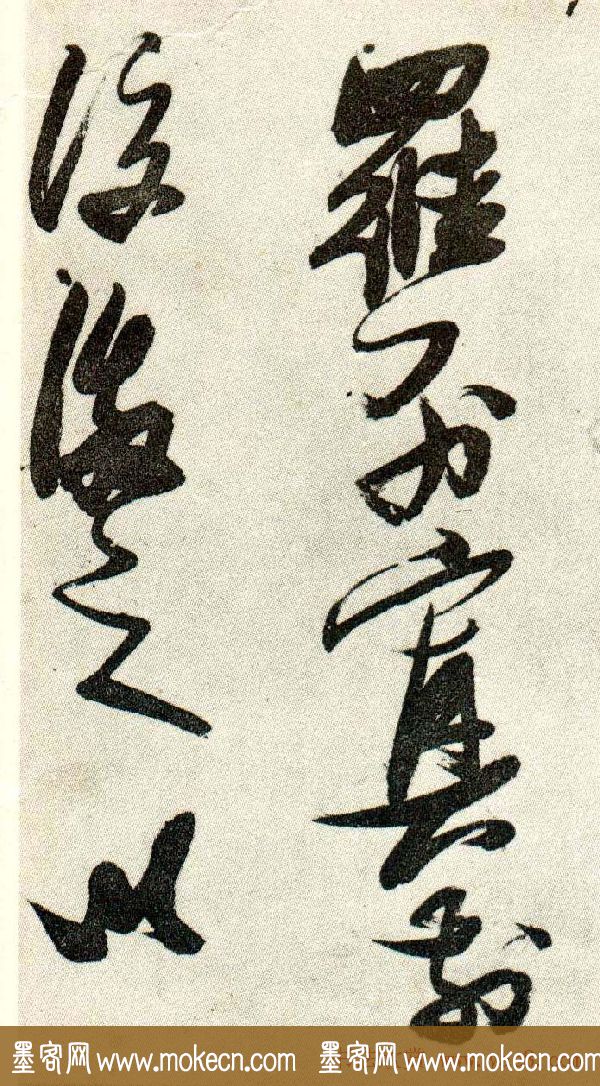 羅為寘前
後誨之以
墨客网 www.mokecn.com 墨客网 www.mokecn.com